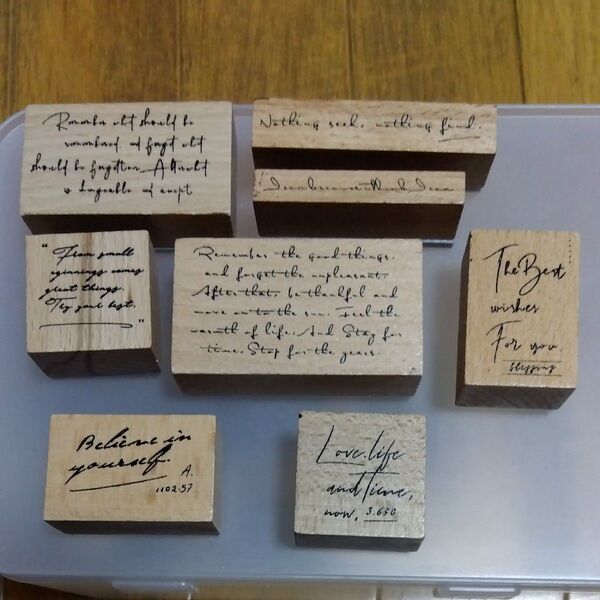 Remember what should be
remembered and forget what
should be forgotten. Alter what
is changeable and accept
Nothing seek, nothing find.
"From small
beginnings comes
great things.
Try your best."
Remember the good things.
and forget the unpleasant.
After that, be thankful and
move on to the sun. Feel the
warmth of life. And Stay for
time. Stop for the years.
The Best
wishes
For you
blessing
Believe in
yourself.
A.
1102.57
Love. life
and Time,
now, 3.650